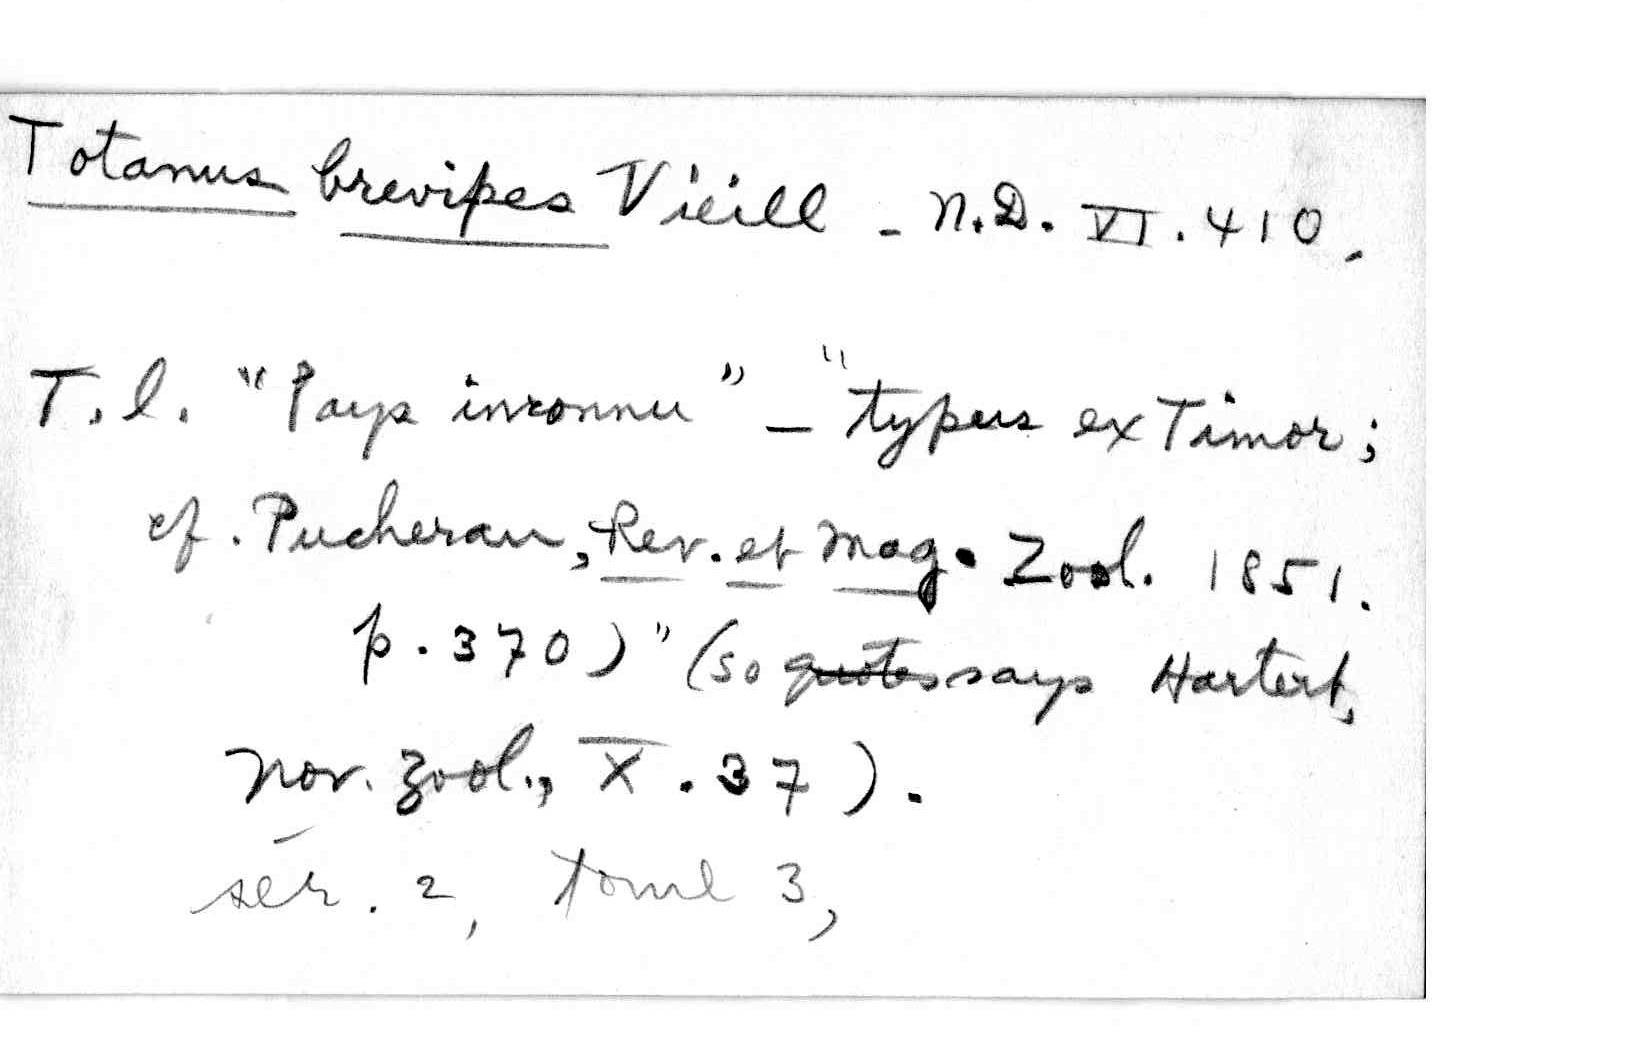 Totanus brevipes Vieill - N.D. VI. 410.
T.l. "Pays inconnu" - "typus ex Timor;
cf. Pucheran, Rev. et Mag. Zool. 1851.
p. 370)" (so quotes says Hartert,
Nov. Zool., X. 37).
sér. 2, tome 3,